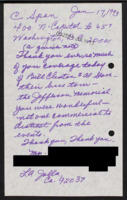 C. Span Jan 17, 1993
400 N. Capitol St 650
Washington
Thank you ever so much
for your coverage today
of Bill Clinton & Al Gore
their bus tour
the Jefferson Memorial.
You were wonderful -
not one commercial to
distract from the
events.
Thank you, Thank you.
La Jolla,
Ca. 92037